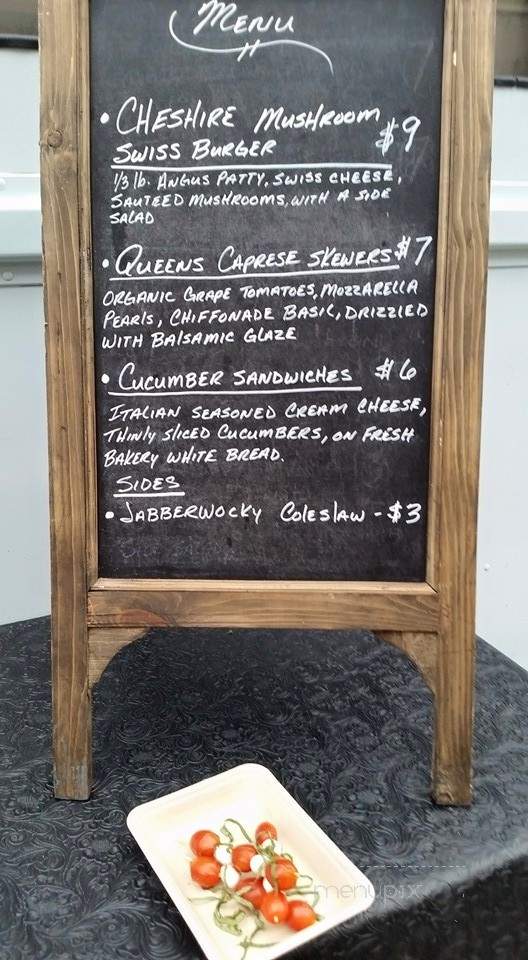 MENU
• CHESHIRE MUSHROOM $9
SWISS BURGER
1/3 lb. ANGUS PATTY, SWISS CHEESE,
SAUTEED MUSHROOMS, WITH A SIDE
SALAD
• QUEENS CAPRESE SKEWERS $7
ORGANIC GRAPE TOMATOES, MOZZARELLA
PEARLS, CHIFFONADE BASIL, DRIZZLED
WITH BALSAMIC GLAZE
• CUCUMBER SANDWICHES $6
ITALIAN SEASONED CREAM CHEESE,
THINLY SLICED CUCUMBERS, ON FRESH
BAKERY WHITE BREAD.
SIDES
• JABBERWOCKY COLESLAW - $3
menupix